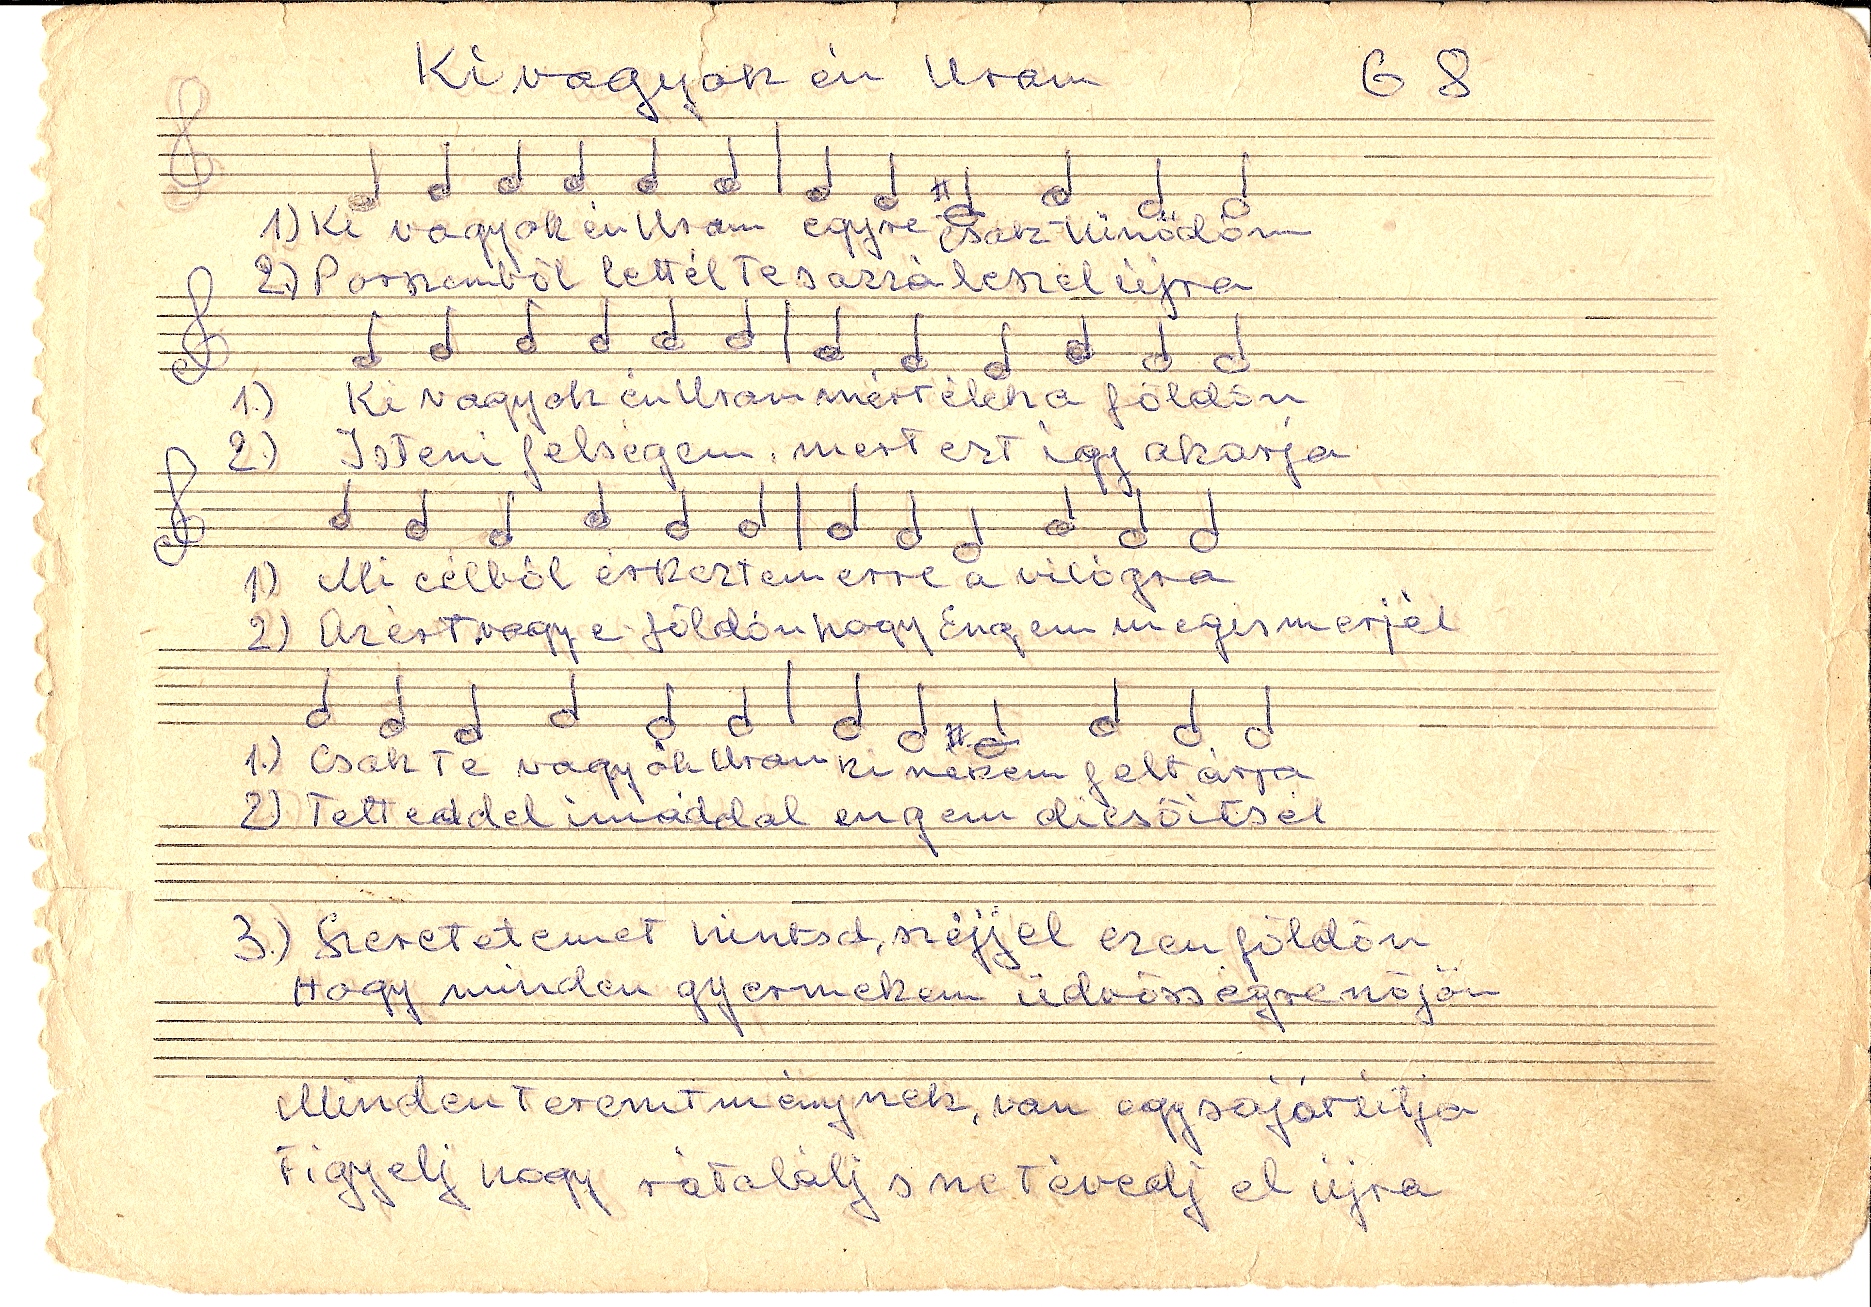 Ki vagyok én Uram 68
1) Ki vagyok én Uram egyre csak tünődöm
2.) Porszemből lettél te s azzá leszel újra
1.) Ki vagyok én Uram mért élek a földön
2.) Isteni felségem, mert ezt így akarja
1) Mi célból érkeztem erre a világra
2) Azért vagy e földön hogy Engem megismerjél
1.) Csak te vagy ók Uram ki nekem feltárja
2) Tetteddel imáddal engem dicsőitsél
3.) Szeretetemet hintsd, széjjel ezen földön
Hogy minden gyermekem üdvösségre nőjön
Minden teremtménynek, van egy saját útja
Figyelj hogy rátalálj s ne tévedj el újra